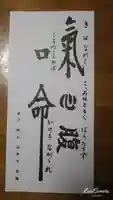 き は ながく
こころはまるく はらたてず
氣 心 腹
口 命
くちつつしめば
いのち ながかれ